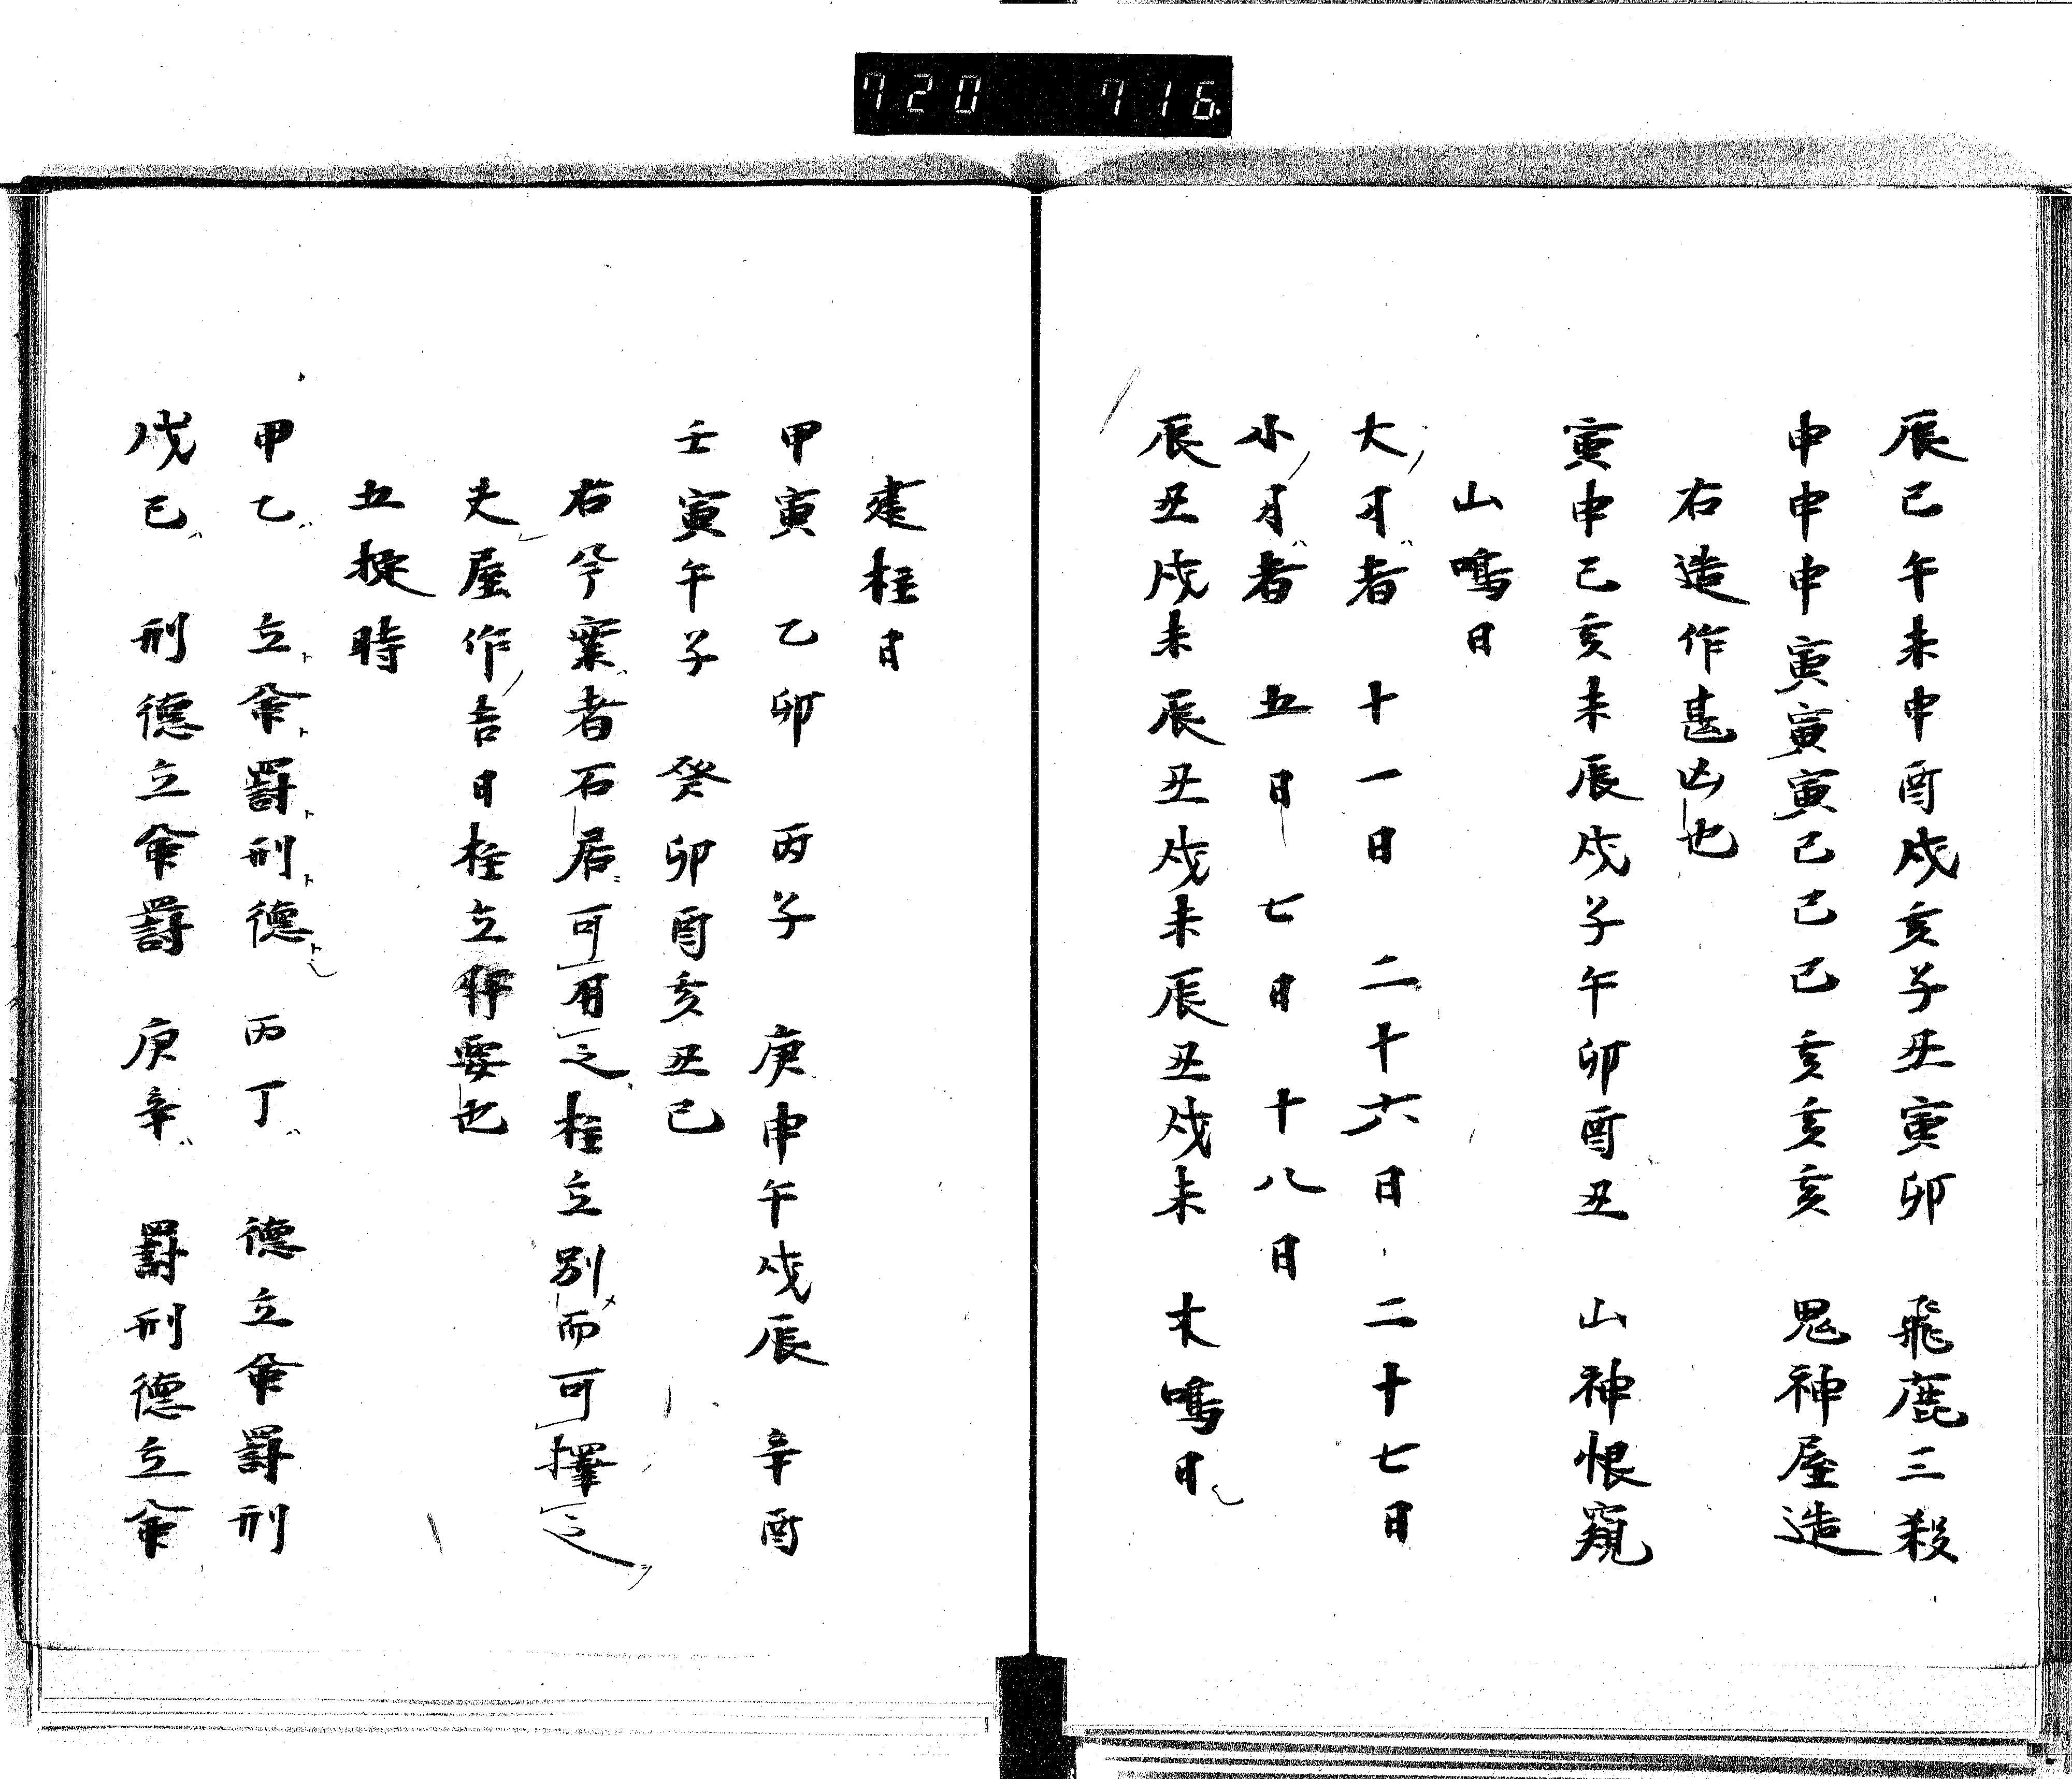 720 716
辰巳午未申酉戌亥子丑寅卯 飛鹿三殺
申申申寅寅寅巳巳巳亥亥亥 鬼神屋造
右造作甚凶也
寅申巳亥未辰戌子午卯酉丑 山神恨窺
山鳴日
大月者 十一日 二十六日 二十七日
小月者 五日 七日 十八日
辰丑戌未辰丑戌未辰丑戌未 木鳴日
建柱日
甲寅 乙卯 丙子 庚申午戌辰 辛酉
壬寅午子 癸卯酉亥丑巳
右今案者石居可用之柱立別而可擇之
丈屋作吉日柱立肝要也
五掟時
甲乙 立命罰刑德 丙丁 德立命罰刑
戊己 刑德立命罰 庚辛 罰刑德立命